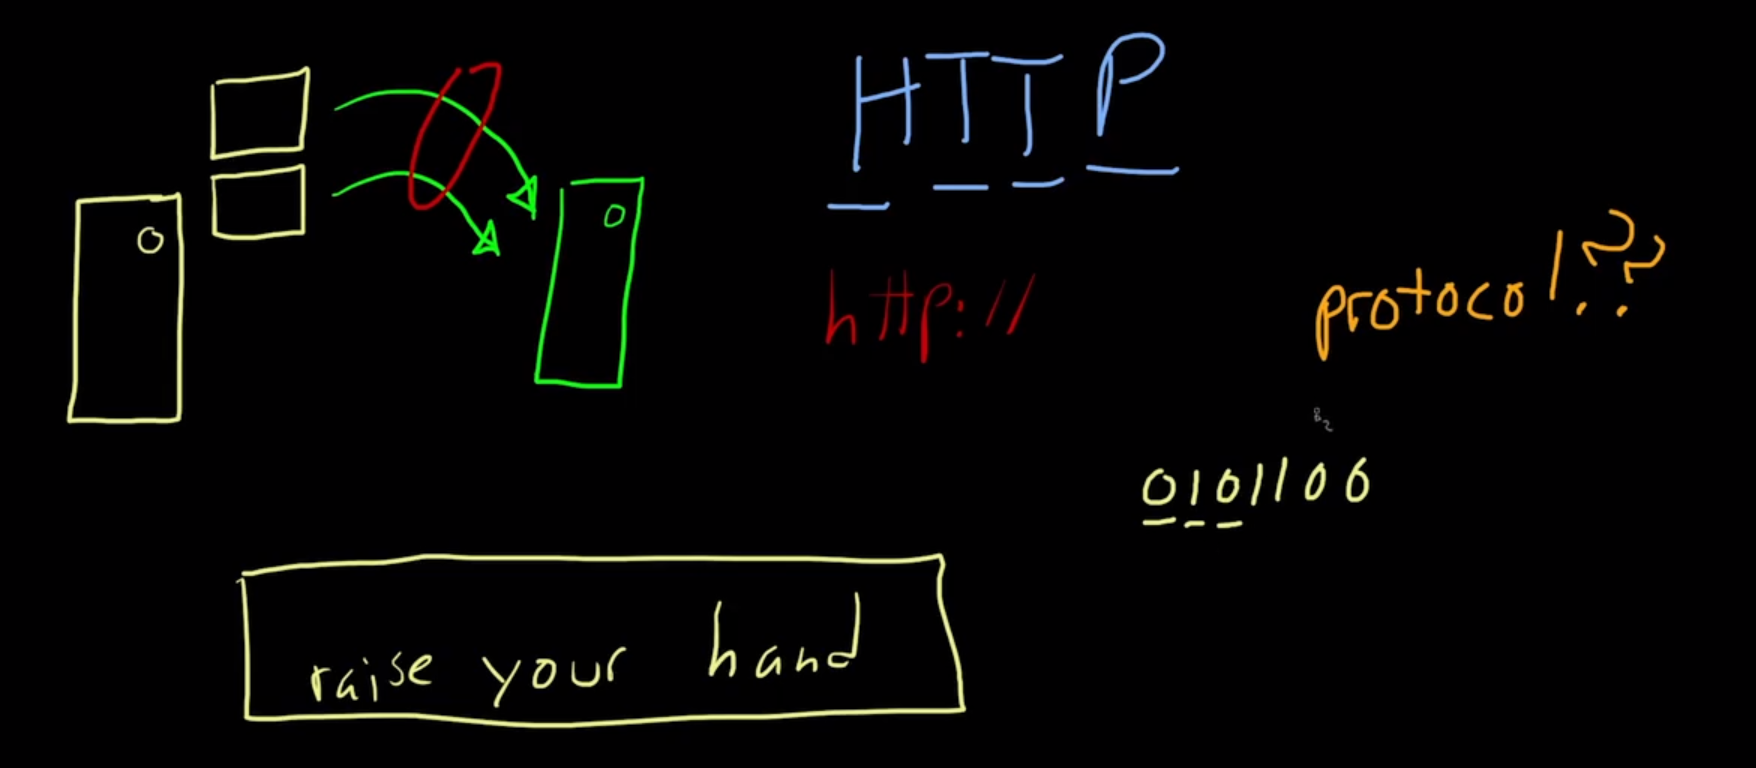 HTTP
http://
protocol??
0101100
raise your hand